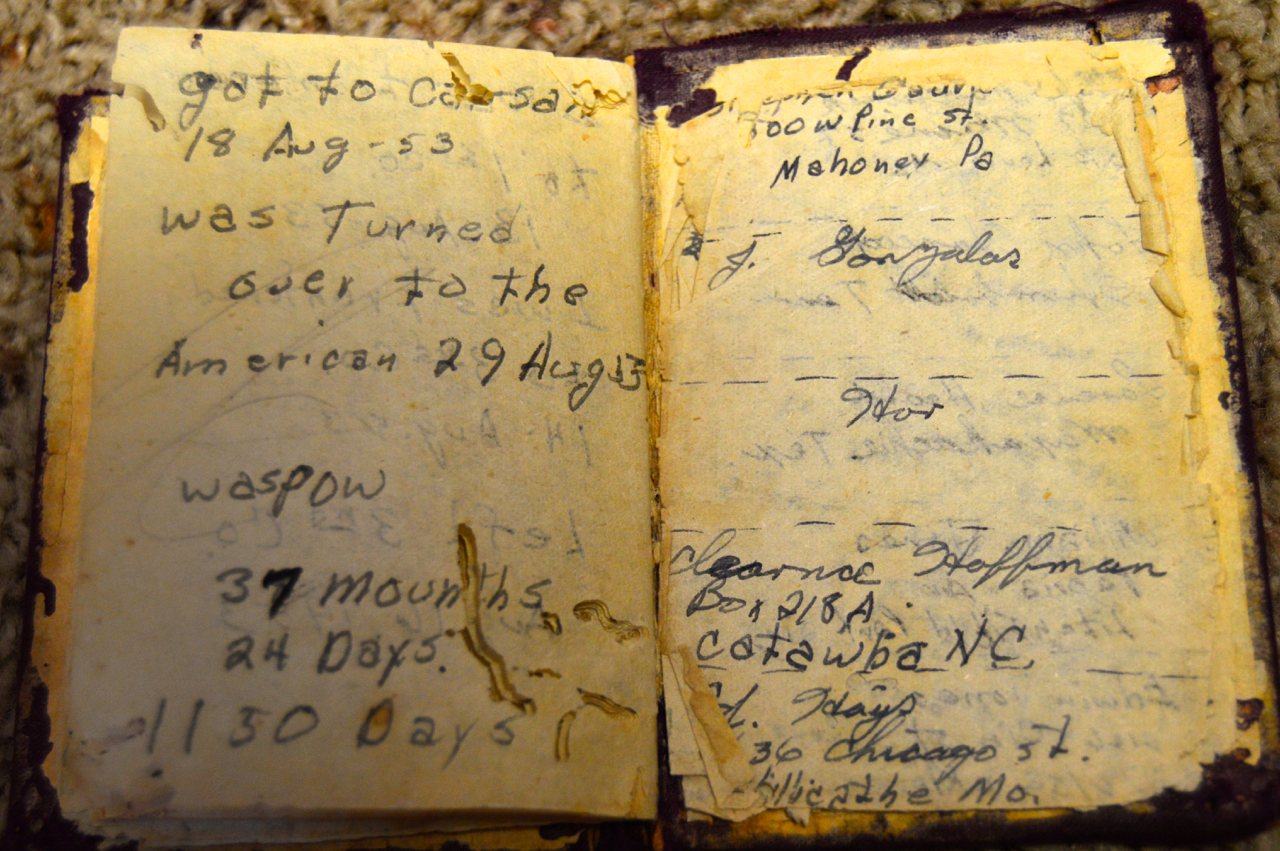 got to
18 Aug - 53
was Turned
over to the
American 29 Aug 53
waspow
37 mounths
24 Days.
1130 Days
00 W Pine St.
Mahoney Pa
J. Gonzalas
Hor
Clearnce Hoffman
Box 218 A.
Catawba NC.
d. Hays
36 Chicago st.
illicothe Mo.